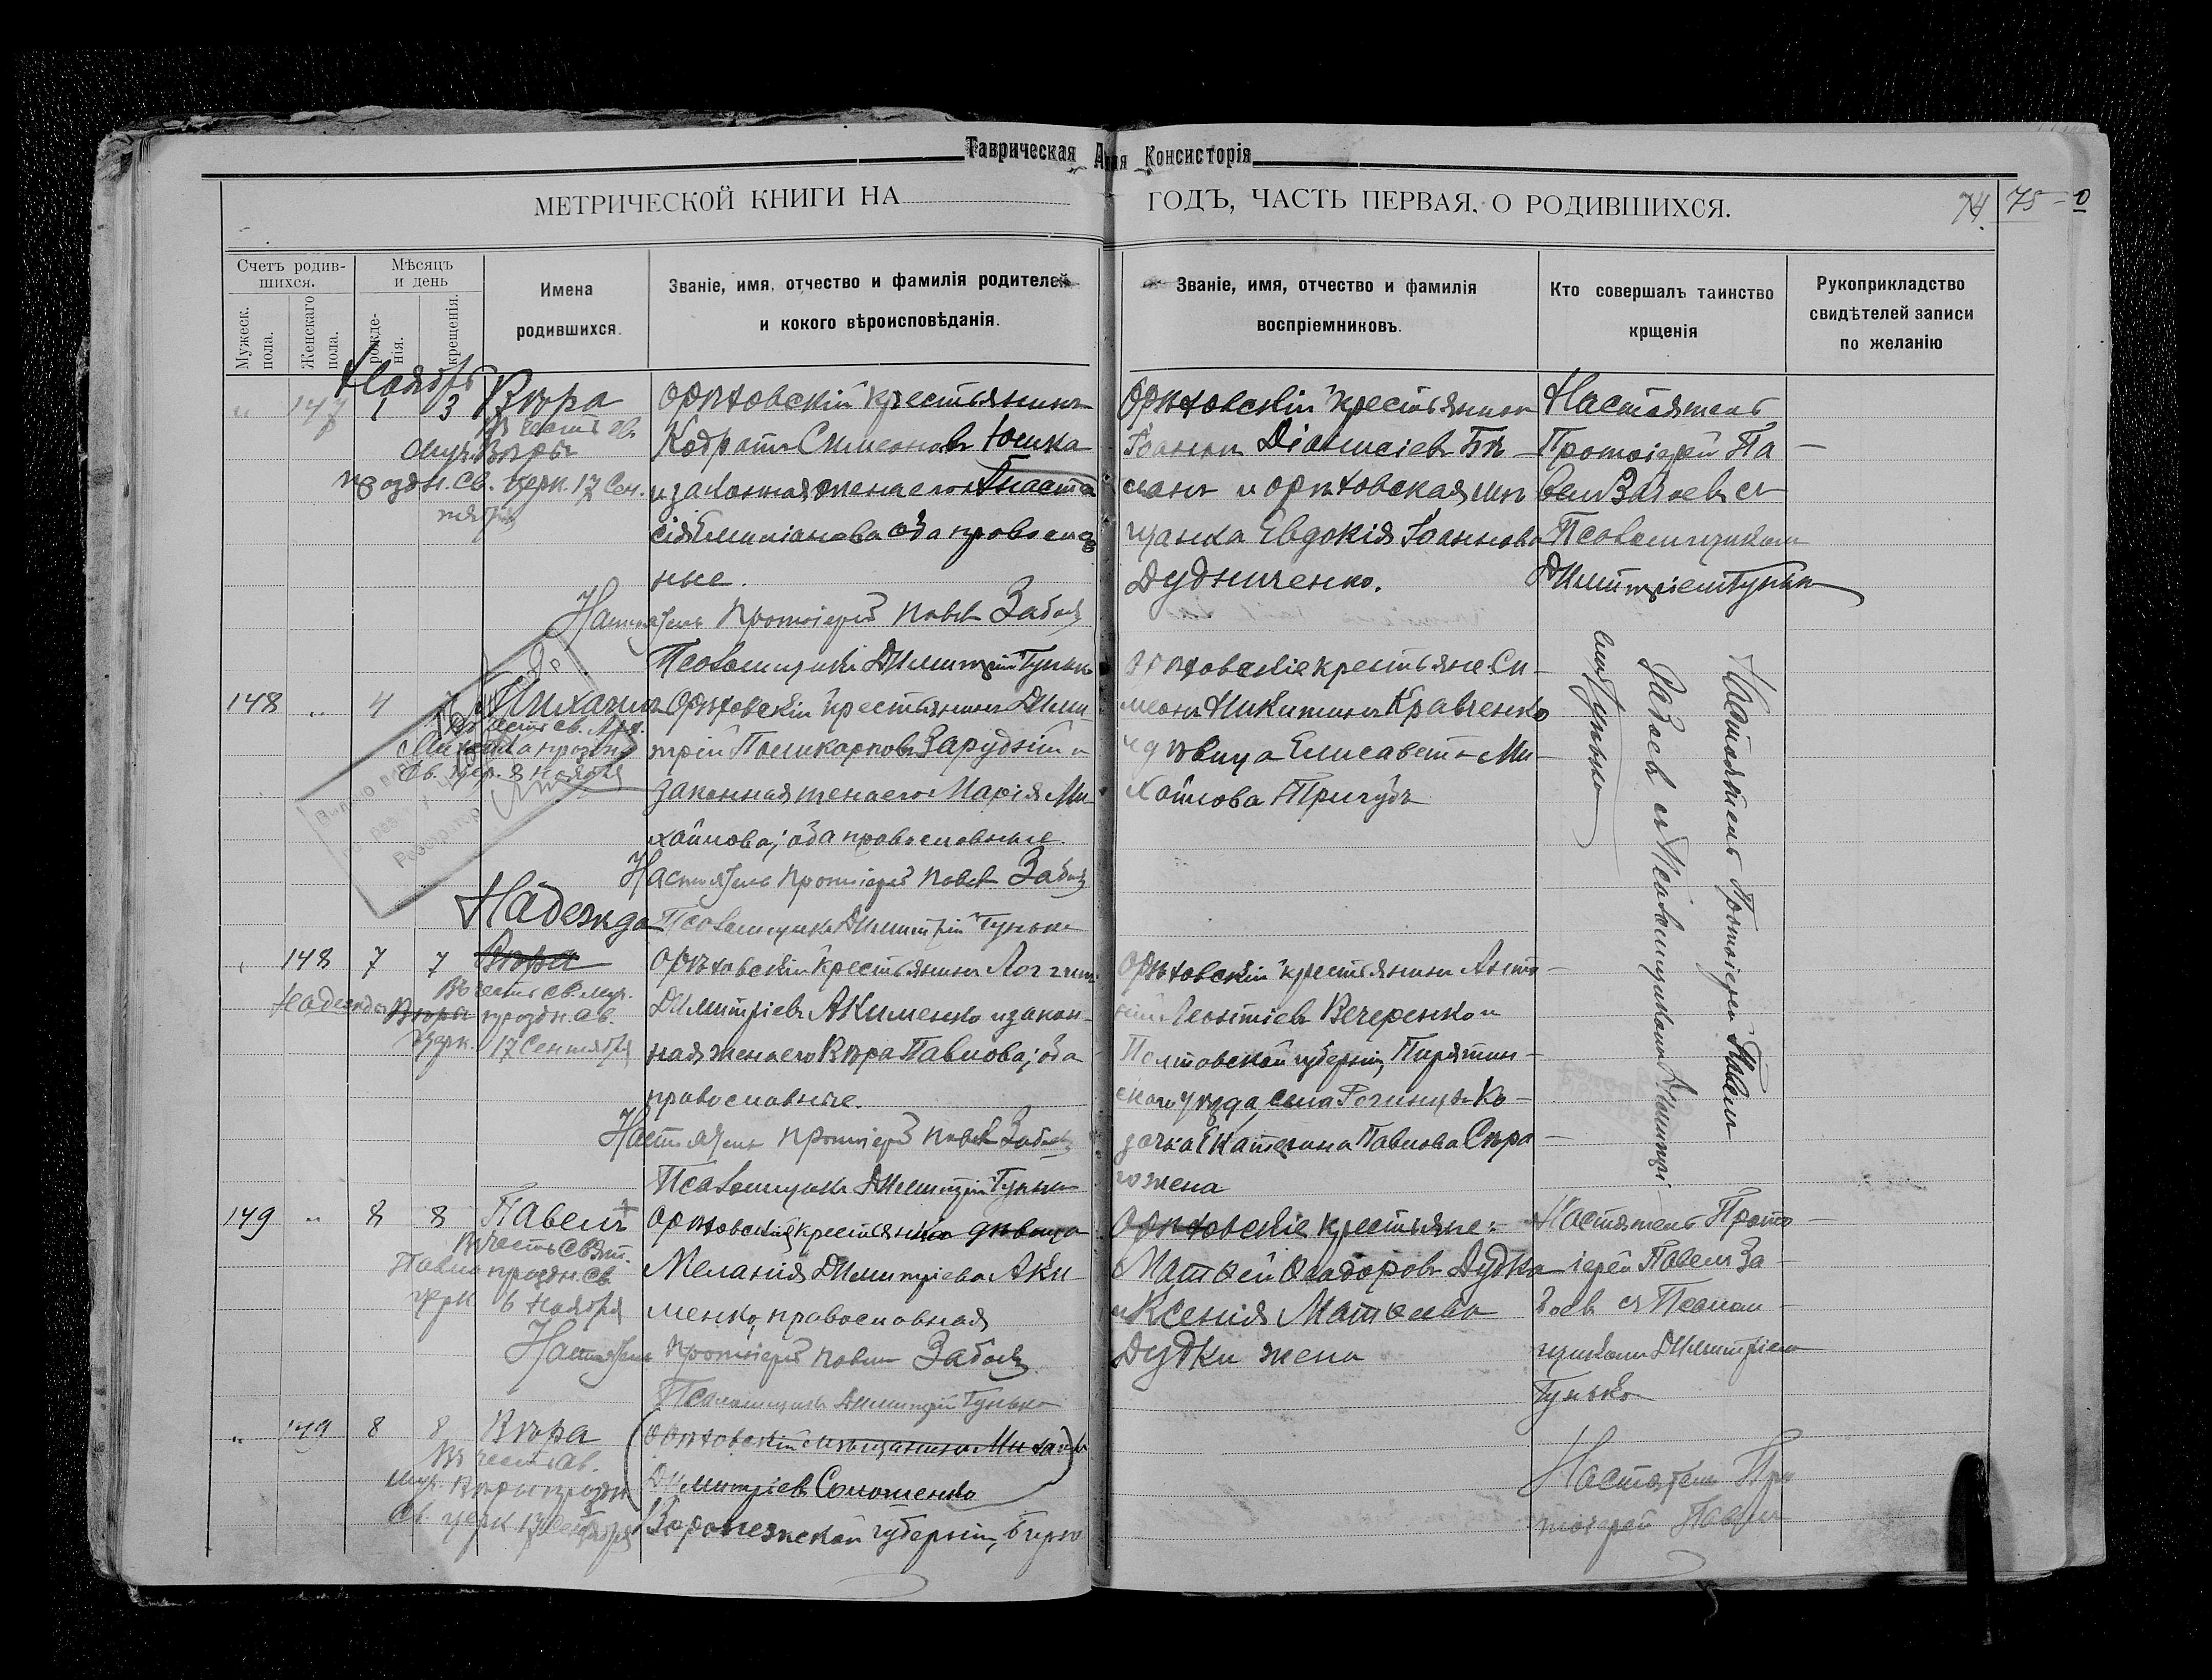 Таврическая
Консисторія
МЕТРИЧЕСКОЙ КНИГИ НА
ГОДЪ, ЧАСТЬ ПЕРВАЯ, О РОДИВШИХСЯ.
74
75
Счетъ родив-
шихся.
Мужеск.
пола.
Женскаго
пола.
Мѣсяцъ
и день
рожде-
нія.
крещенія.
Имена
родившихся.
Званіе, имя, отчество и фамилія родителей
и кокого вѣроисповѣданія.
Званіе, имя, отчество и фамилія
воспріемниковъ.
Кто совершалъ таинство
крщенія
Рукоприкладство
свидѣтелей записи
по желанію
Ноябрь
147 1 3 Вѣра
въ честь св.
муч. Вѣры
праздн. св. церк. 17 Сен.
тября
Орѣховскій крестьянинъ
Кодратъ Симеоновъ Юшка
и законная жена его Анаста
сія Емиліанова оба православ
ные.
Настоятель Протоіерей Павелъ
Псаломщикъ Димитрій Гунько
Орѣховскій крестьянинъ
Іоаннъ Діонисіевъ Бѣ-
ланъ и орѣховская мѣ
щанка Евдокія Іоаннова
Дудниченко.
Настоятель
Протоіерей Па
велъ съ
Псаломщикомъ
Димитріемъ Гунько
148 4 Михаилъ
въ честь св. Арх.
Михаила праздн
св. цер. 8 Ноября
Орѣховскій крестьянинъ Дими
трій Поликарповъ Зарудній и
законная жена его Марія Ми
хайлова; оба православные.
Настоятель Протоіерей Павелъ
Псаломщикъ Димитрій Гунько
Орѣховскіе крестьяне Си-
меонъ Никитинъ Кравченко
и дѣвица Елисавета Ми-
хайлова
Настоятель Протоіерей Павелъ
съ Псаломщикомъ Димитрі
емъ Гунько
Надежда
148 7 7 Вѣра
Въ честь св. муч.
Надежды Вѣры праздн. св.
церк. 17 Сентября
Орѣховскій крестьянинъ Логгинъ
Димитріевъ Акименко и закон-
ная жена его Вѣра Павлова; оба
православные.
Настоятель Протоіерей Павелъ
Псаломщикъ Димитрій Гунько
Орѣховскій крестьянинъ Анто-
ній Леонтіевъ Вечеренко и
Полтавской губерніи, Пирятин-
скаго уѣзда, села Ко-
зачка Екатерина Павлова
жена
149 8 8 Павелъ
Въ честь Свят.
Павла праздн. св
церк 6 Ноября
Орѣховская крестьянка дѣвица
Меланія Димитріева Аки
менко, православная
Настоятель Протоіерей Павелъ
Псаломщикъ Димитрій Гунько
Орѣховскіе крестьяне:
Матѳей Ѳеодоровъ Дудка
и Ксенія Матѳеева
Дудки жена
Настоятель Прото
іерей Павелъ
съ Псалом-
щикомъ Димитріемъ
Гунько
149 8 8 Вѣра
Въ честь св.
муч. Вѣры праздн
св. церк 17 Сентября
Орѣховскій мѣщанинъ Михаилъ
Димитріевъ
Воронежской губерніи, Бирю
Настоятель Про
тоіерей Павелъ